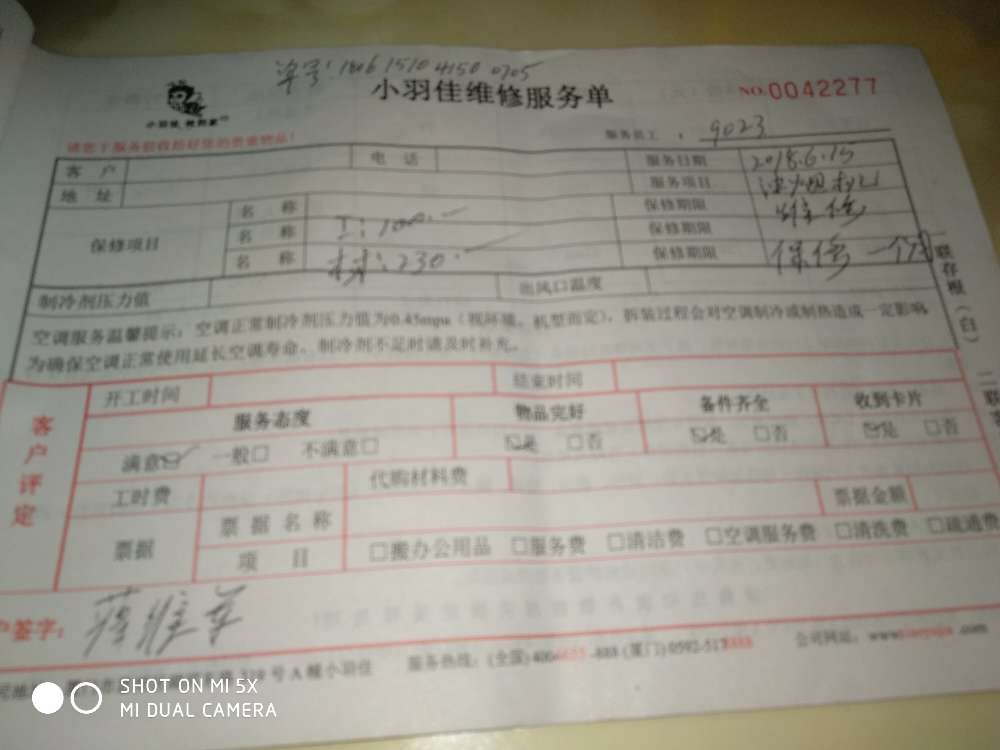 单号:1806151041500705
小羽佳维修服务单 NO.0042277
小羽佳
请您于服务前收拾好您的贵重物品!
服务员工: 9023
客户 电话 服务日期 2018.6.15
地址 服务项目 油烟机
保修项目
名称 工:100.- 保修期限 维修
名称 保修期限
名称 材:230.- 保修期限 保修一个月
制冷剂压力值 出风口温度
空调服务温馨提示:空调正常制冷剂压力值为0.45mpa(视环境、机型而定),拆装过程会对空调制冷或制热造成一定影响,
为确保空调正常使用延长空调寿命,制冷剂不足时请及时补充。
一联存根(白)
二联
客户评定
开工时间 结束时间
服务态度 物品完好 备件齐全 收到卡片
满意☑ 一般□ 不满意□ ☑是 □否 ☑是 □否 ☑是 □否
工时费 代购材料费
票据 票据名称 票据金额
项目 □搬办公用品 □服务费 □清洁费 □空调服务费 □清洗费 □疏通费
户签字:
号A幢小羽佳 服务热线:(全国)400-6655-888(厦门)0592-5178888 公司网址:www.xiaoyujia.com
SHOT ON MI 5X
MI DUAL CAMERA